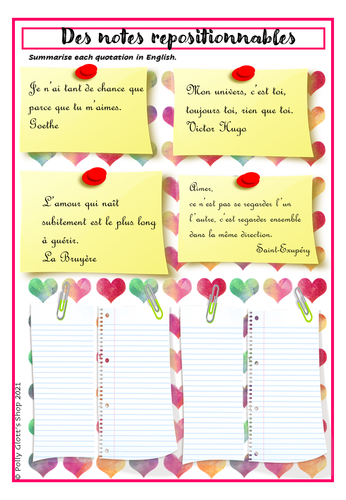 Des notes repositionnables
Summarise each quotation in English.
Je n'ai tant de chance que
parce que tu m'aimes.
Goethe
Mon univers, c'est toi,
toujours toi, rien que toi.
Victor Hugo
L'amour qui naît
subitement est le plus long
à guérir.
La Bruyère
Aimer,
ce n'est pas se regarder l'un
l'autre, c'est regarder ensemble
dans la même direction.
Saint-Exupéry
© Polly Glott's Shop 2021